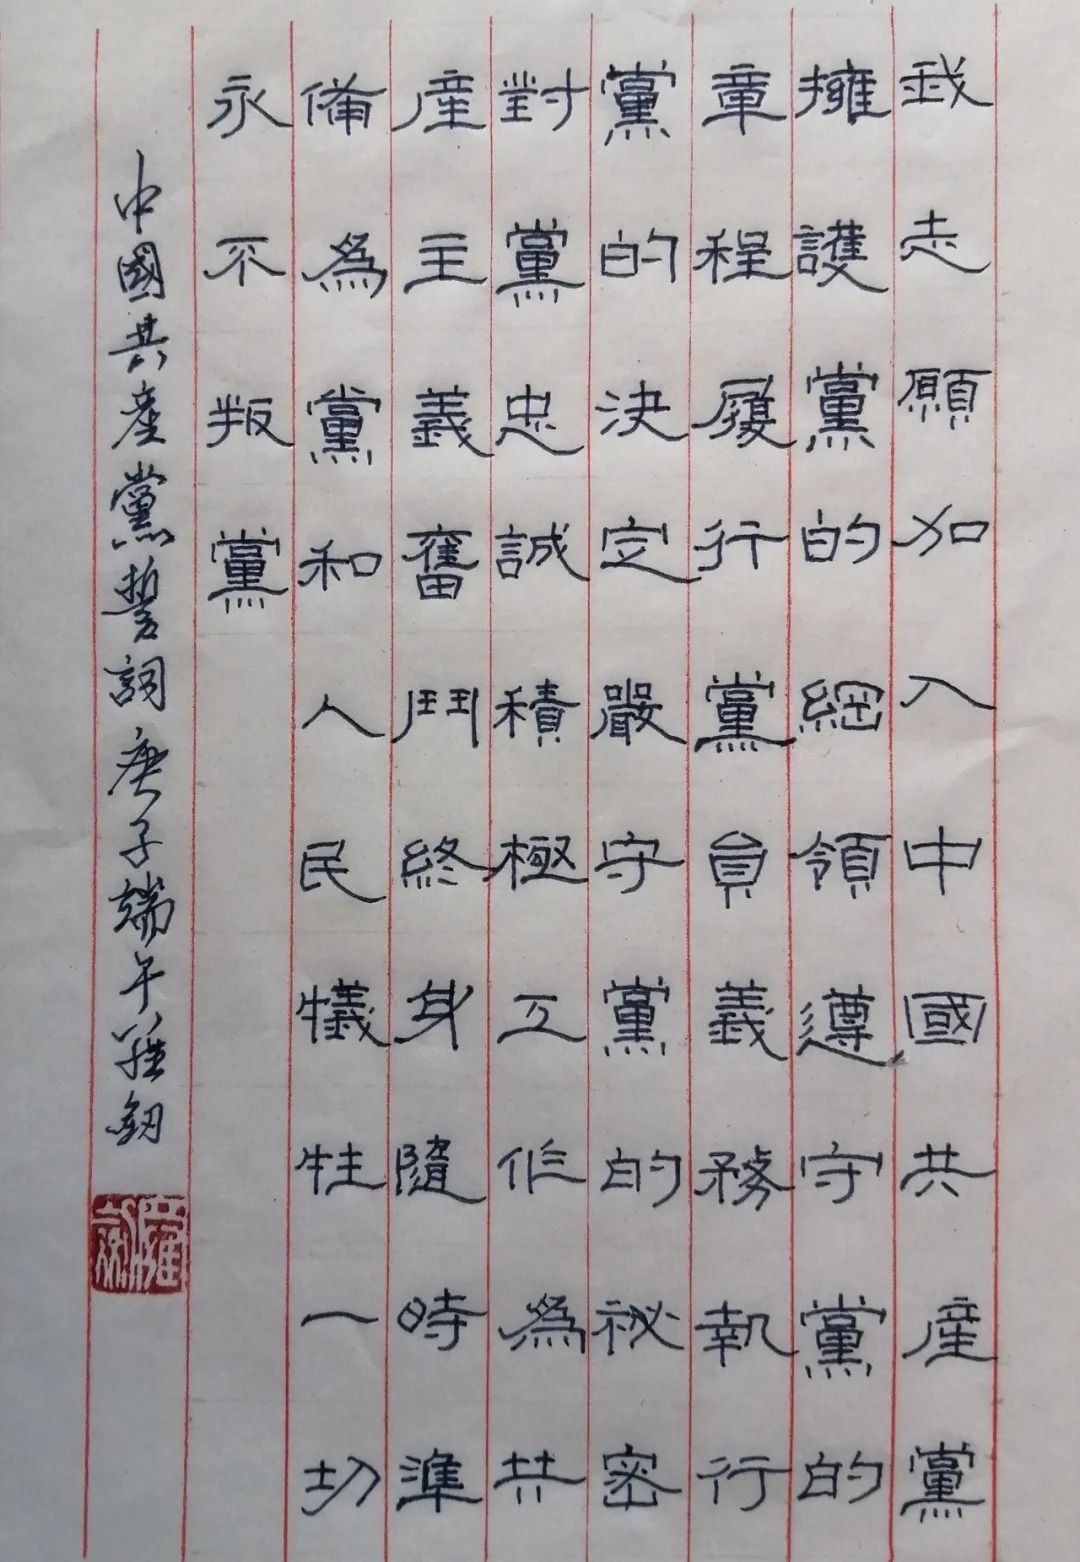 我志願加入中國共産黨
擁護黨的綱領遵守黨的
章程履行黨員義務執行
黨的決定嚴守黨的祕密
對黨忠誠積極工作為共
産主義奮鬥終身隨時準
備為黨和人民犧牲一切
永不叛黨
中國共産黨誓詞庚子端午羅
羅